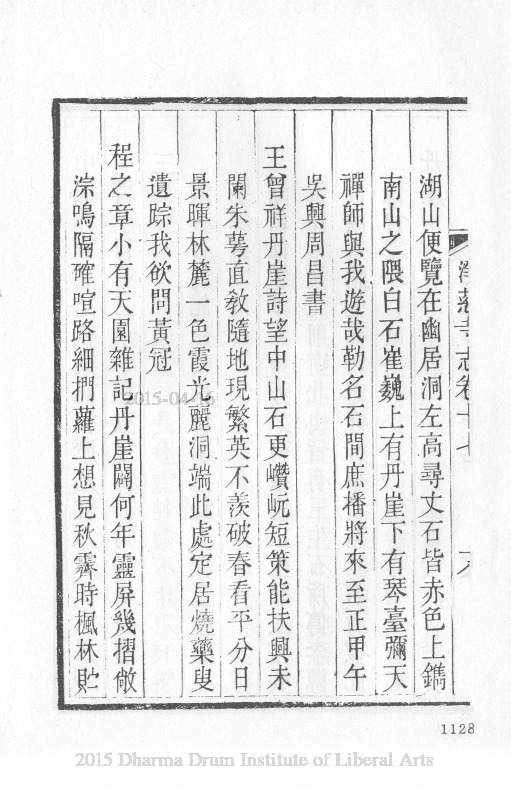 湖山便覽在幽居洞左高尋丈石皆赤色上鐫
南山之隈白石崔巍上有丹崖下有琴臺彌天
禪師與我遊哉勒名石間庶播將來至正甲午
吳興周昌書
王曾祥丹崖詩望中山石更巑岏短策能扶興未
闌朱萼直教隨地現繁英不羨破春看平分日
景暉林麓一色霞光麗洞端此處定居燒藥叟
遺踪我欲問黃冠
程之章小有天園雜記丹崖闢何年靈屏幾摺敞
淙鳴隔確喧路細捫蘿上想見秋霽時楓林貯
淨慈寺志卷十七
1128
2015-04-15
2015 Dharma Drum Institute of Liberal Arts